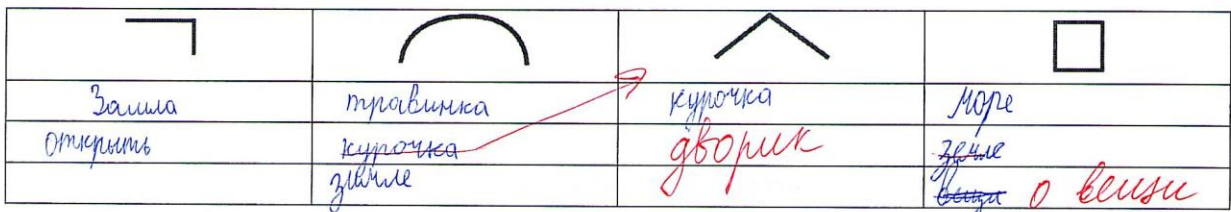 Зашла травинка курочка море
открыть курочка дворик земле
земле вещи о вещи